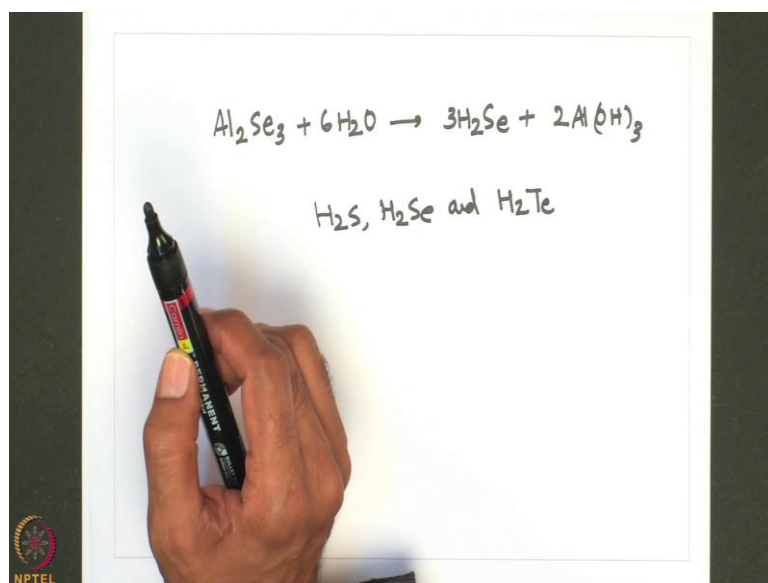 Al₂Se₃ + 6H₂O → 3H₂Se + 2Al(OH)₃
H₂S, H₂Se and H₂Te
Camlin
PERMANENT
BULLET
NPTEL